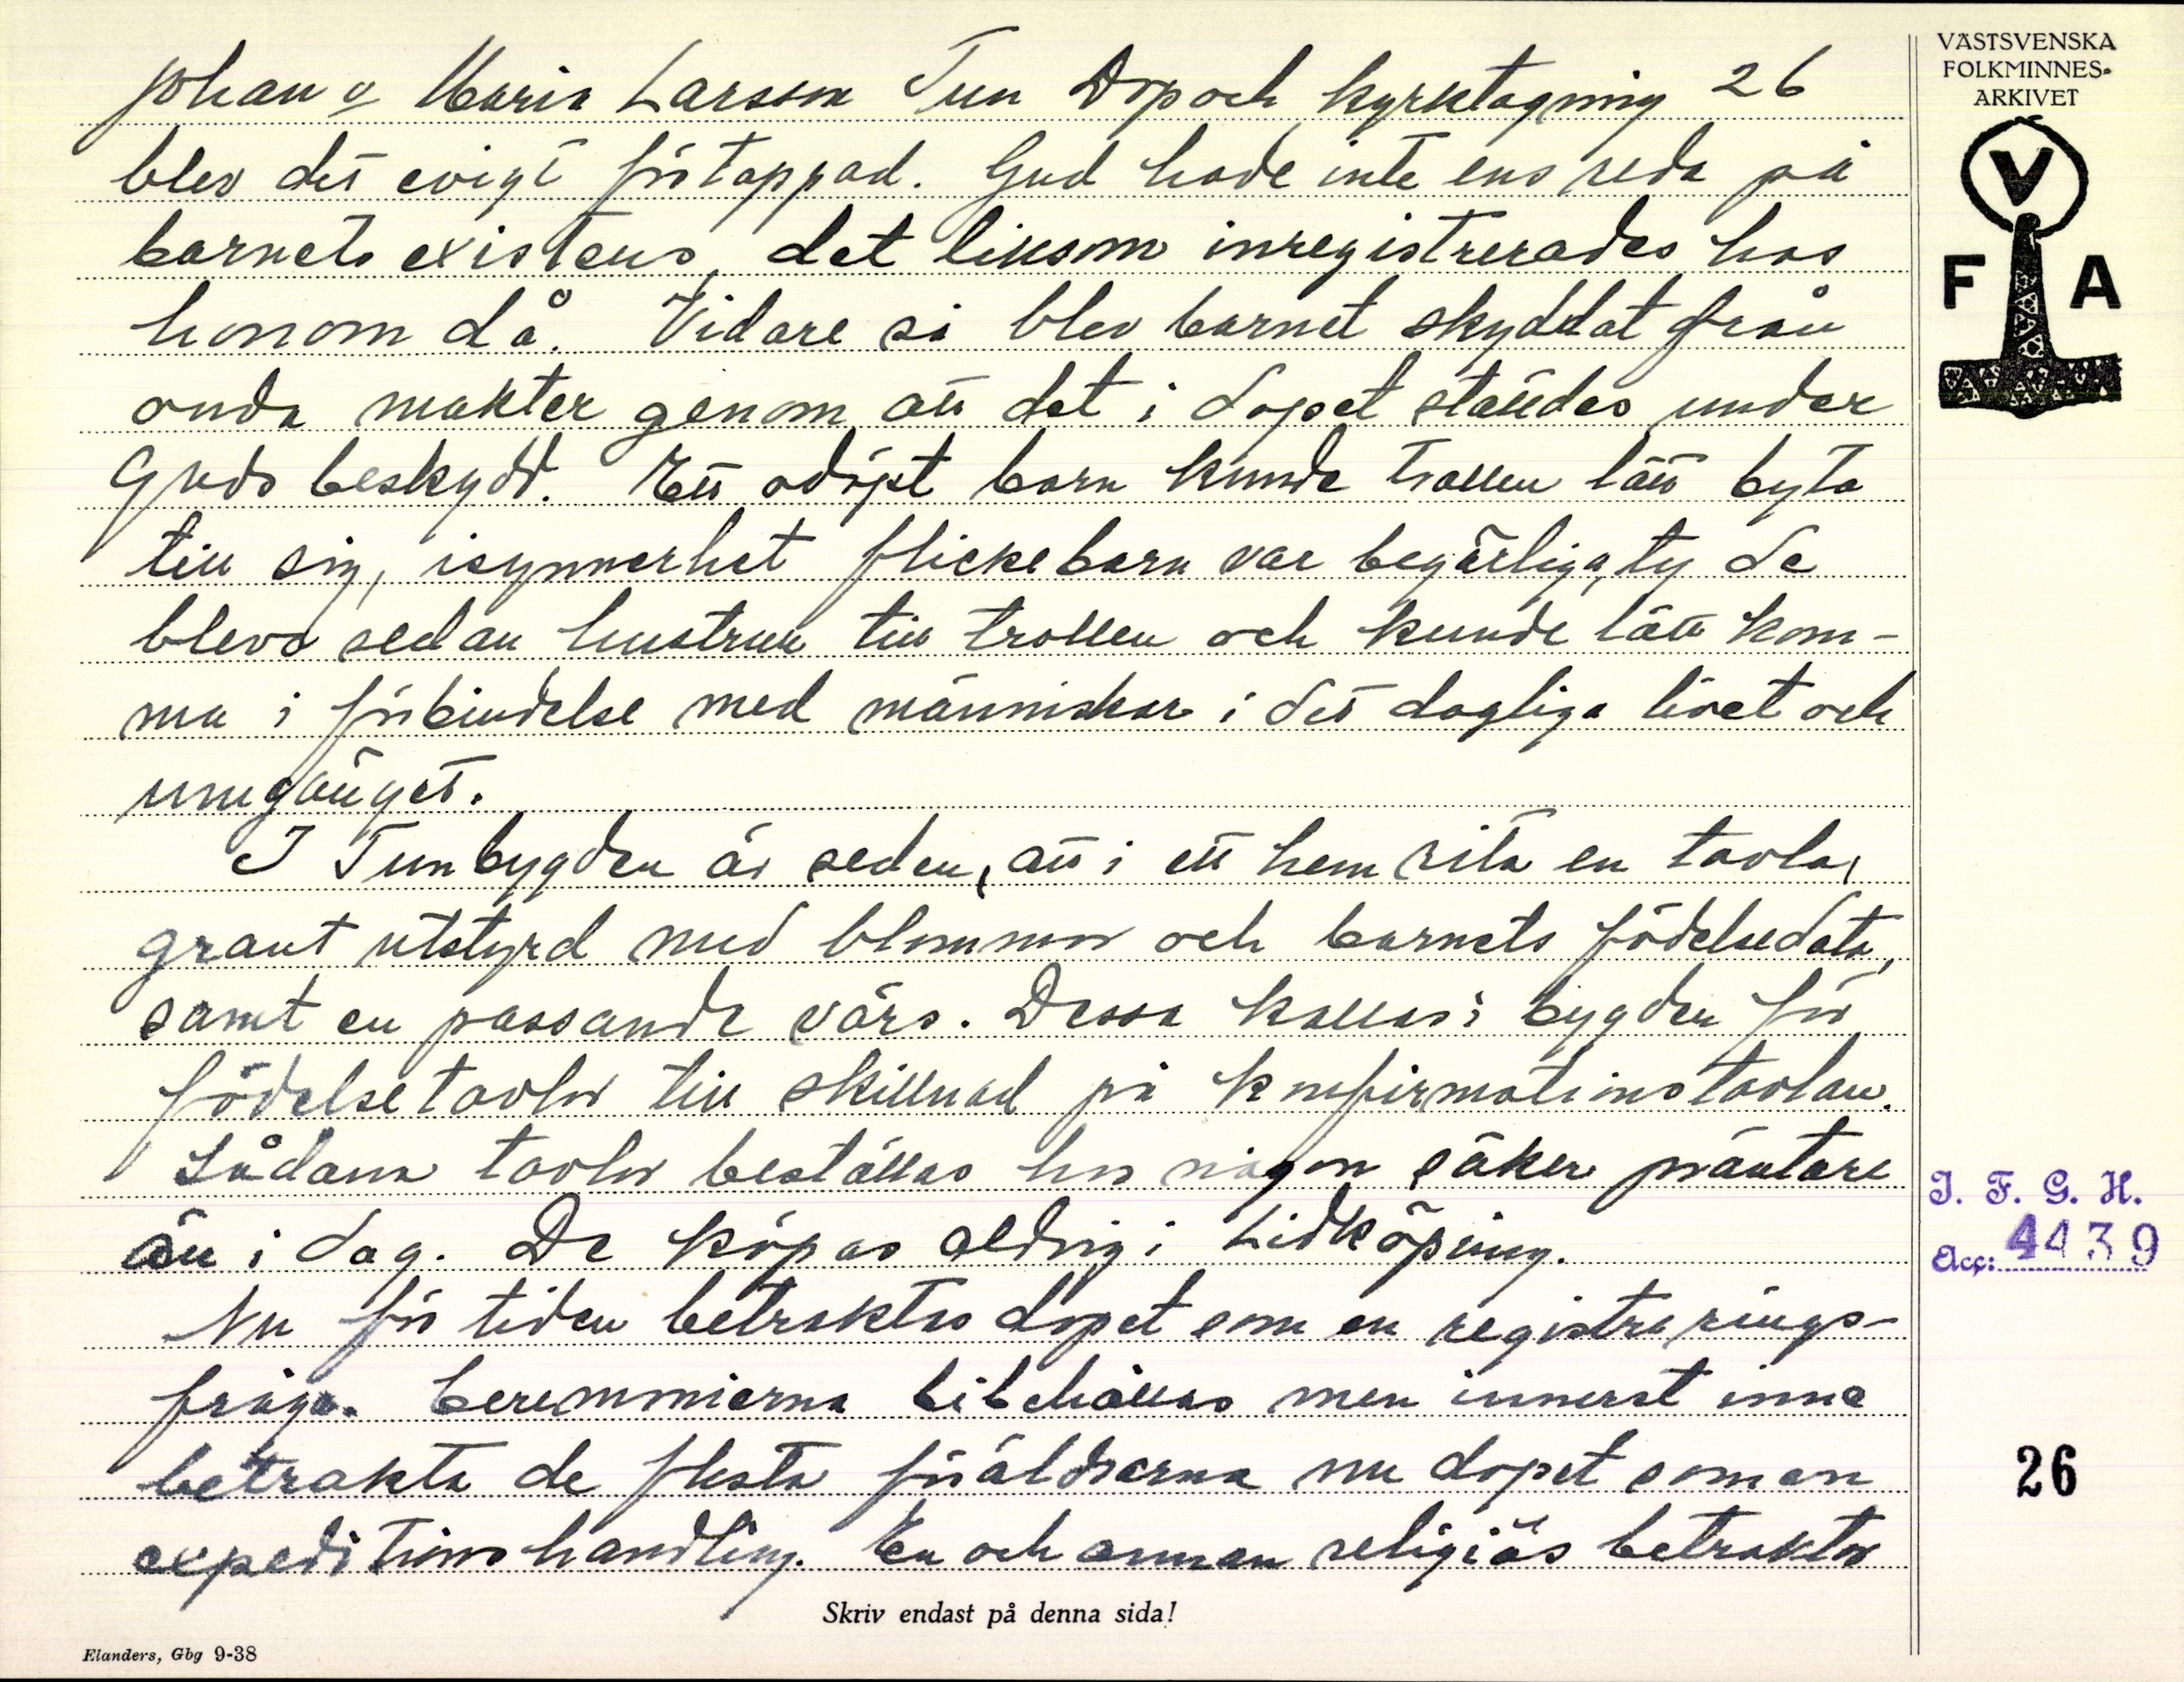 Johan o Maria Larsson Tun Dop och kyrktagning 26
blev det evigt förtappad. Gud hade inte ens reda på
barnets existens, det liksom inregistrerades hos
honom då. Vidare så blev barnet skyddat från
onda makter genom att det i dopet ställdes under
Guds beskydd. Ett odöpt barn kunde trollen lätt byta
till sig, isynnerhet flickebarn var begärliga, ty de
blevo sedan hustrur till trollen och kunde lätt kom-
ma i förbindelse med människor i det dagliga livet och
umgänget.
I Tunbygden är seden, att i ett hem rita en tavla,
grant utstyrd med blommor och barnets födelsedata,
samt en passande värs. Dessa kallas i bygden för
födelsetavlor till skillnad på konfirmationstavlan.
Sådana tavlor beställas hos någon säker präntare
än i dag. De köpas aldrig i Lidköping.
Nu för tiden betraktas dopet som en registrerings-
fråga. Ceremonierna bibehållas men innerst inne
betrakta de flesta föräldrarna nu dopet som en
expeditionshandling. En och annan religiös betraktar
Skriv endast på denna sida!
Elanders, Gbg 9-38
VÄSTSVENSKA
FOLKMINNES-
ARKIVET
V
F A
I. F. G. H.
Acc: 4439
26